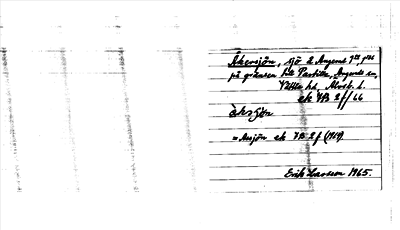 Åkersjön, sjö 2 Angered
på gränsen till Partille, Angereds sn,
Vättle hd, Älvsb. l.
ek VB 2 ff 66
àksjön
= Aksjön ek VB 2 f (1919)
Erik Larsson 1965.